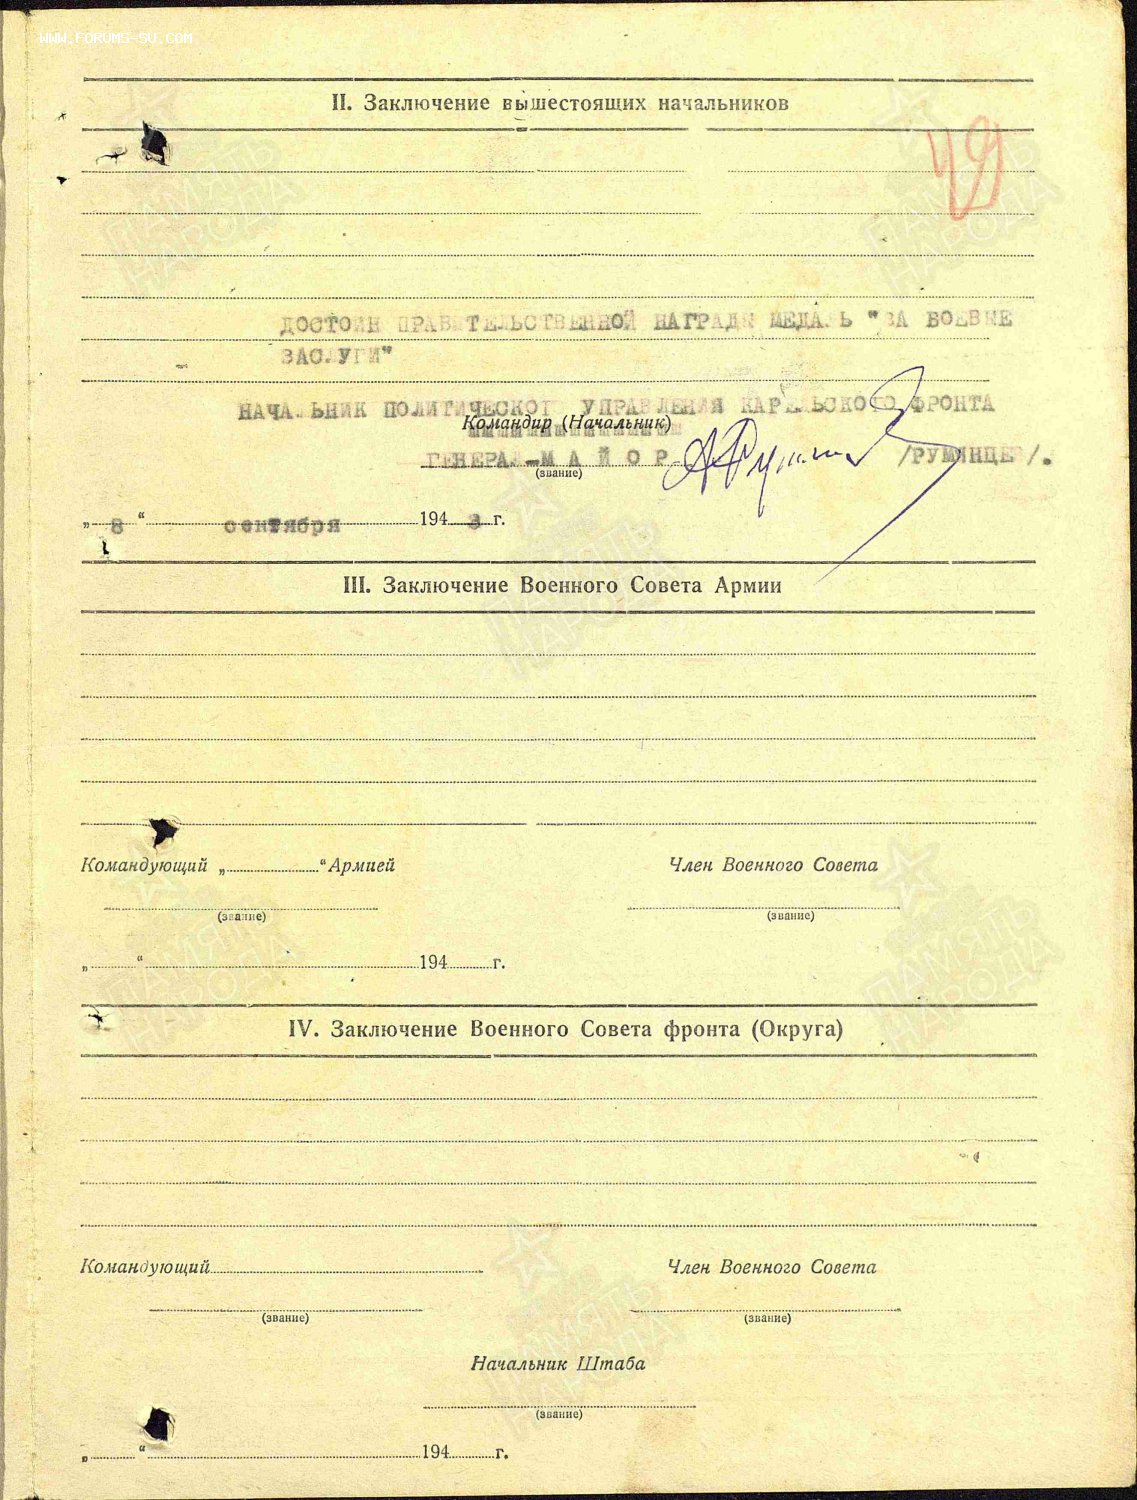 WWW.FORUMS-SU.COM
II. Заключение вышестоящих начальников
49
ДОСТОИН ПРАВИТЕЛЬСТВЕННОЙ НАГРАДЫ МЕДАЛЬ "ЗА БОЕВЫЕ
ЗАСЛУГИ"
НАЧАЛЬНИК ПОЛИТИЧЕСКОГО УПРАВЛЕНИЯ КАРЕЛЬСКОГО ФРОНТА
Командир (Начальник)
ГЕНЕРАЛ-МАЙОР /РУМЯНЦЕВ/.
(звание)
„ 8 “ сентября 194 3 г.
III. Заключение Военного Совета Армии
Командующий „ “ Армией Член Военного Совета
(звание) (звание)
„ “ 194 г.
IV. Заключение Военного Совета фронта (Округа)
Командующий Член Военного Совета
(звание) (звание)
Начальник Штаба
(звание)
„ “ 194 г.
ПАМЯТЬ НАРОДА